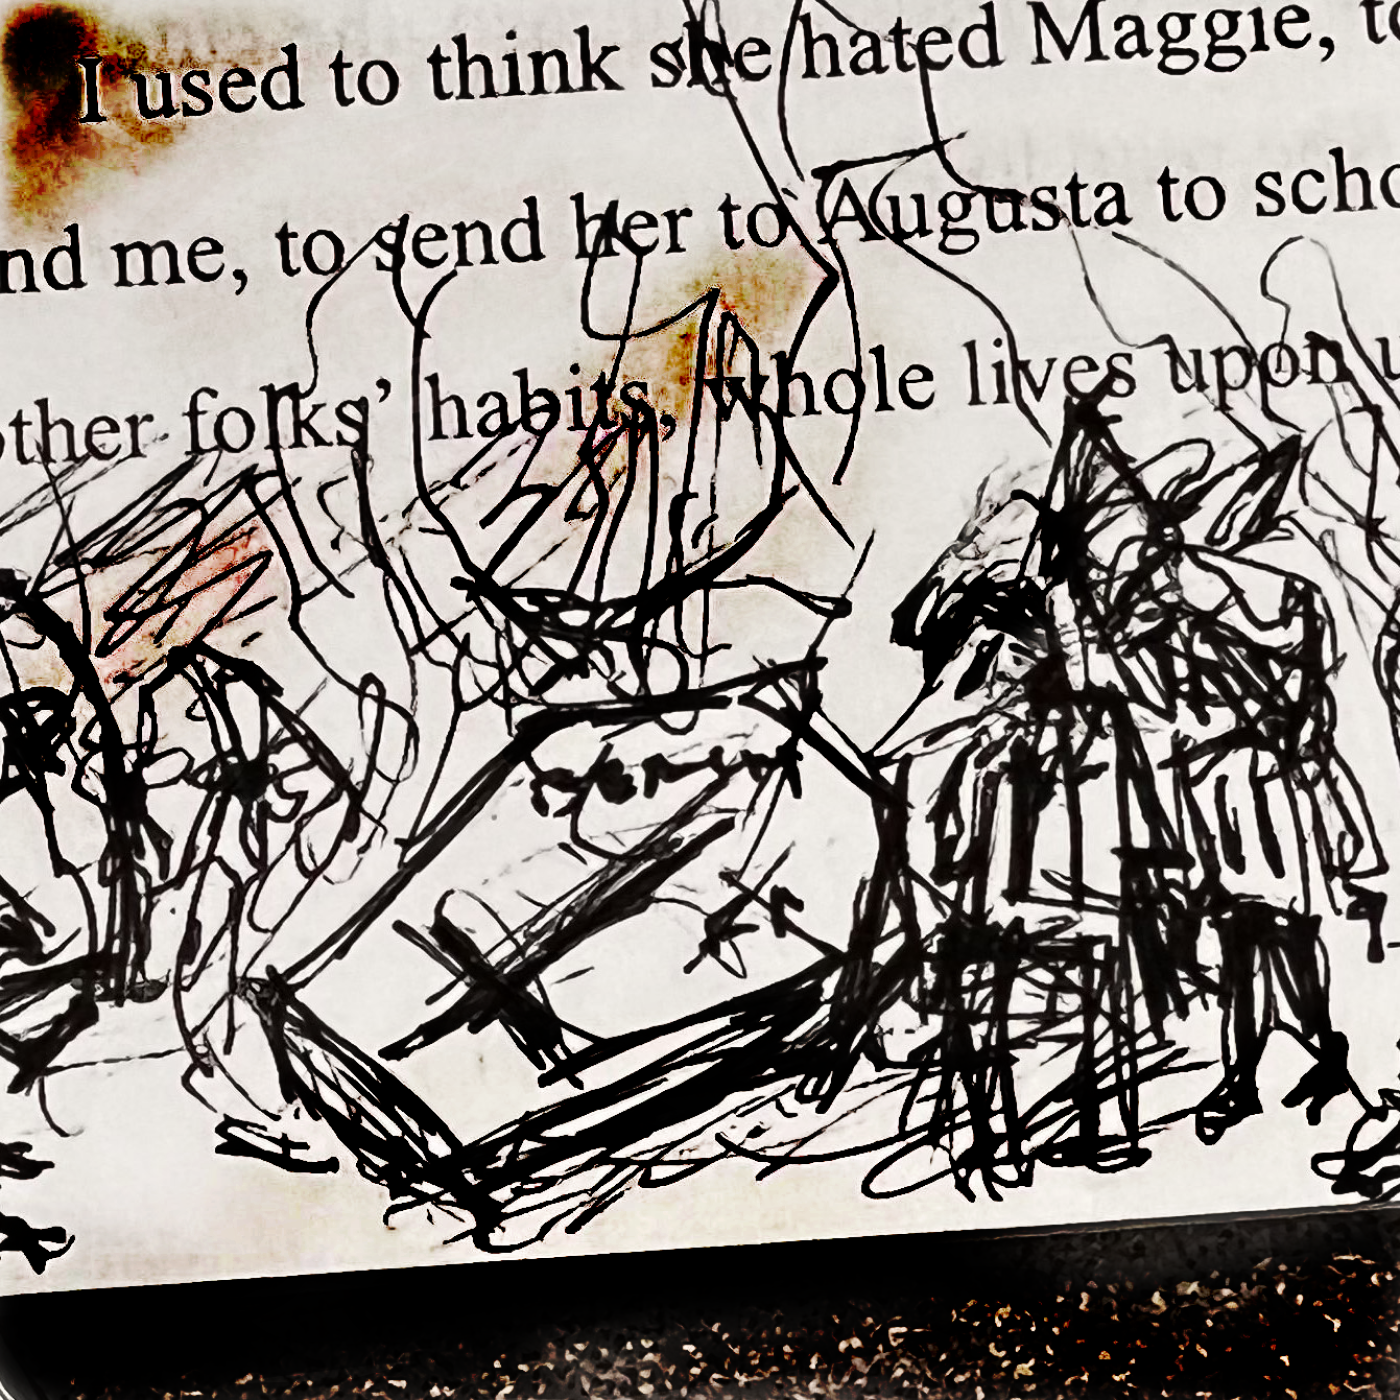 I used to think she hated Maggie, to
nd me, to send her to Augusta to scho
other folks' habits, whole lives upon u